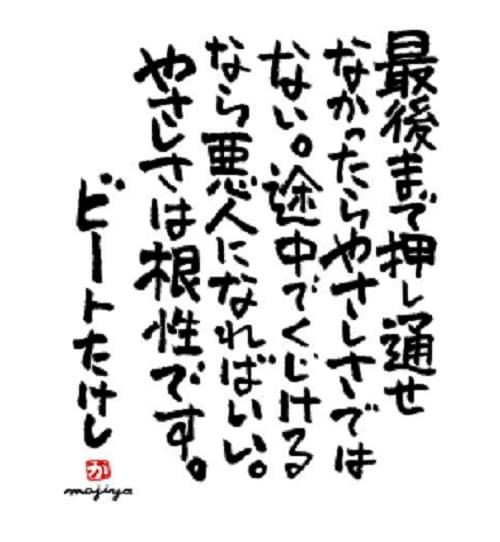 最後まで押し通せ
なかったらやさしさでは
ない。途中でくじける
なら悪人になればいい。
やさしさは根性です。
ビートたけし
か
mojiya